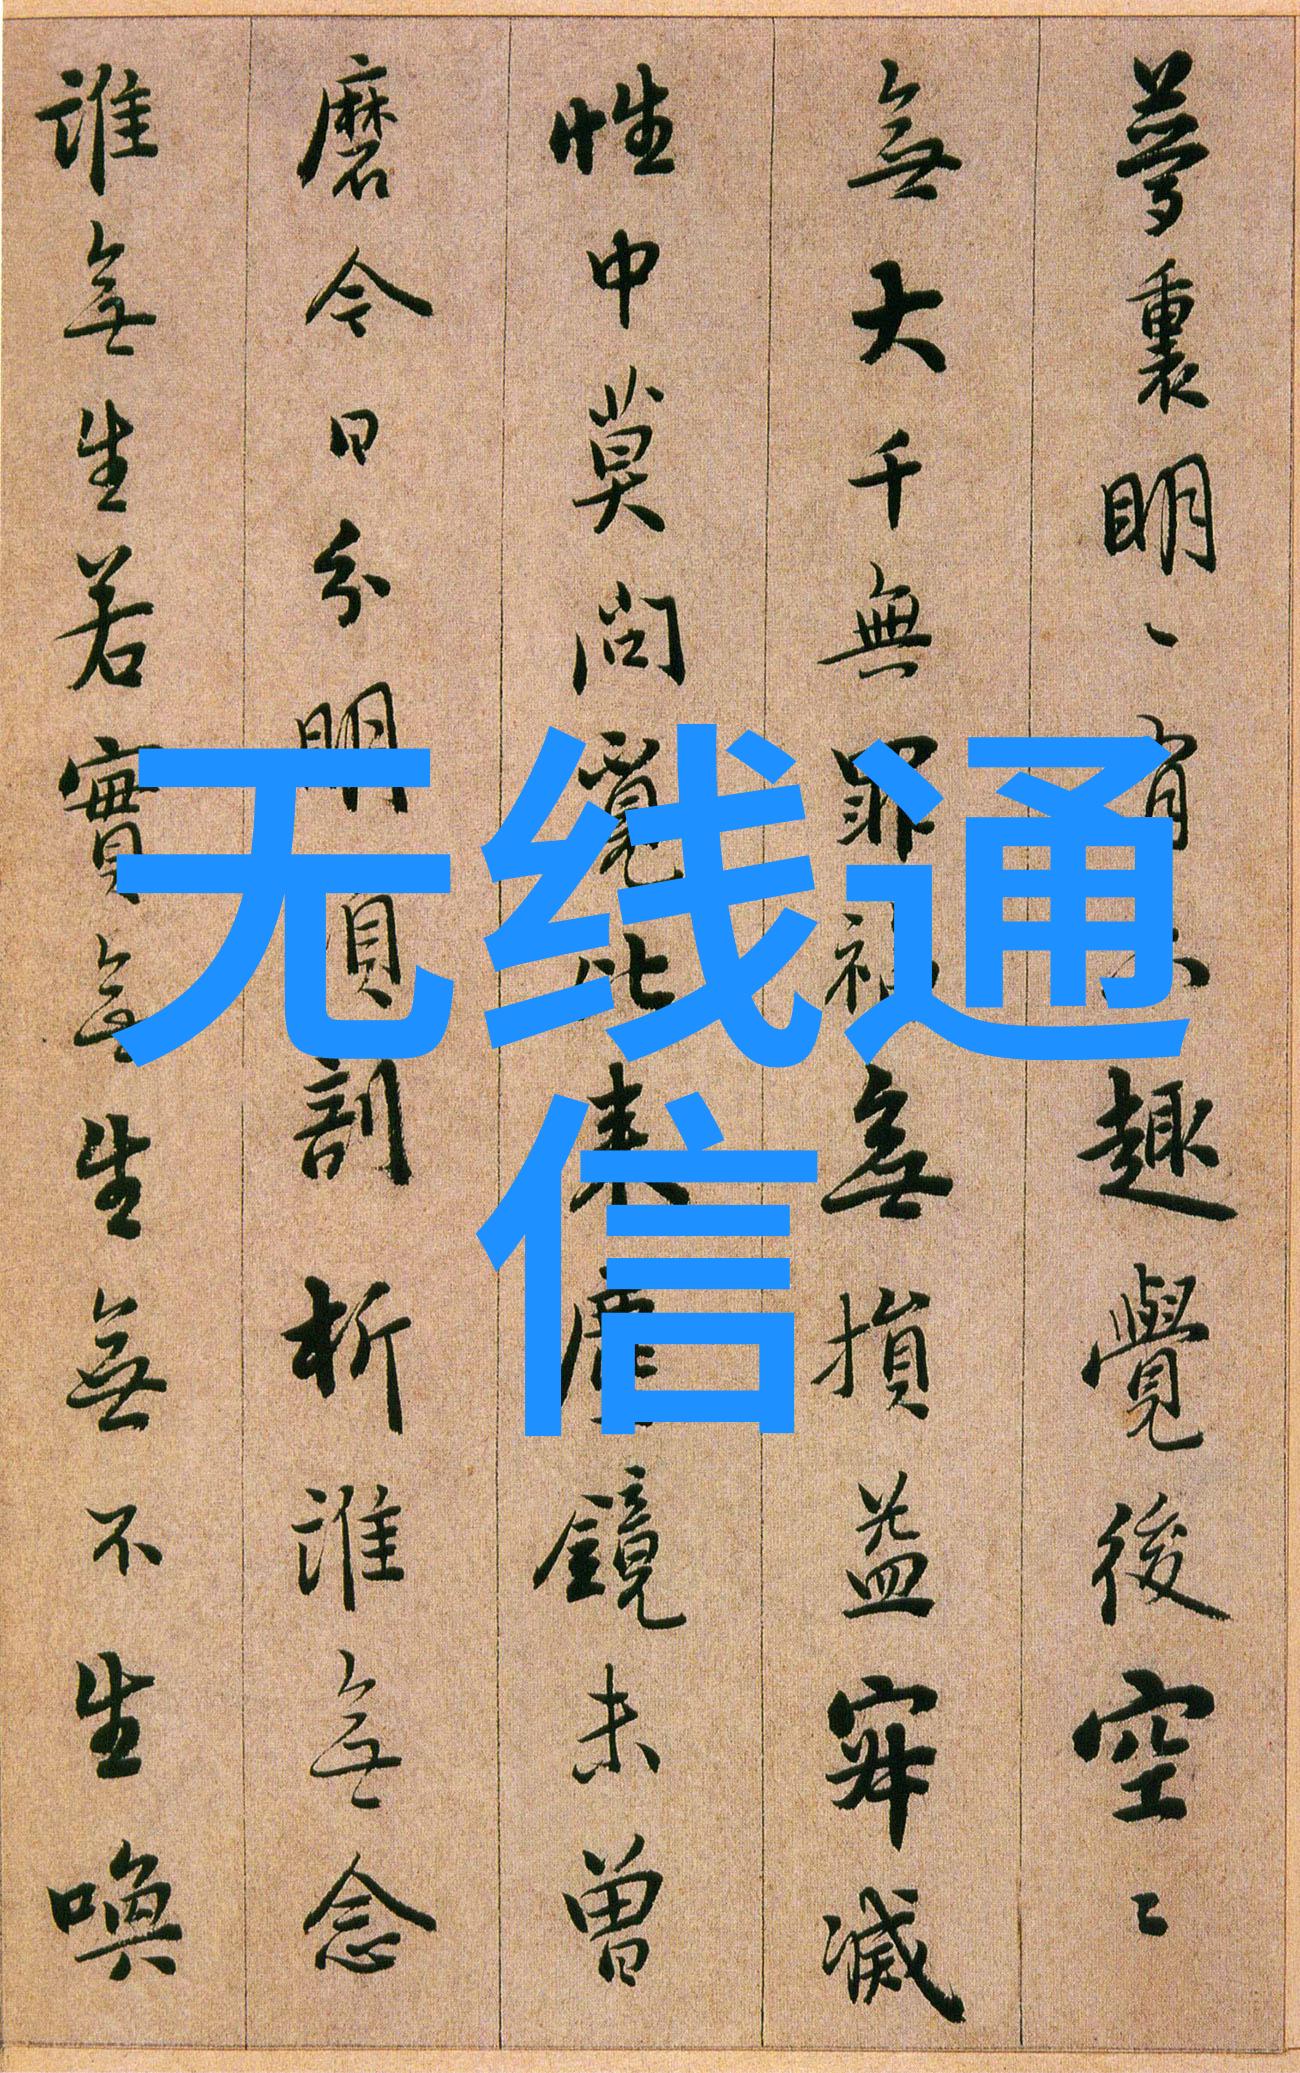 夢裏明丶有趣覺後空〻
無大千無罪福無損益寂滅
性中莫問覓比来塵鏡未曽
磨今日分明須剖析誰無念
誰無生若實無生無不生喚
无线通
信